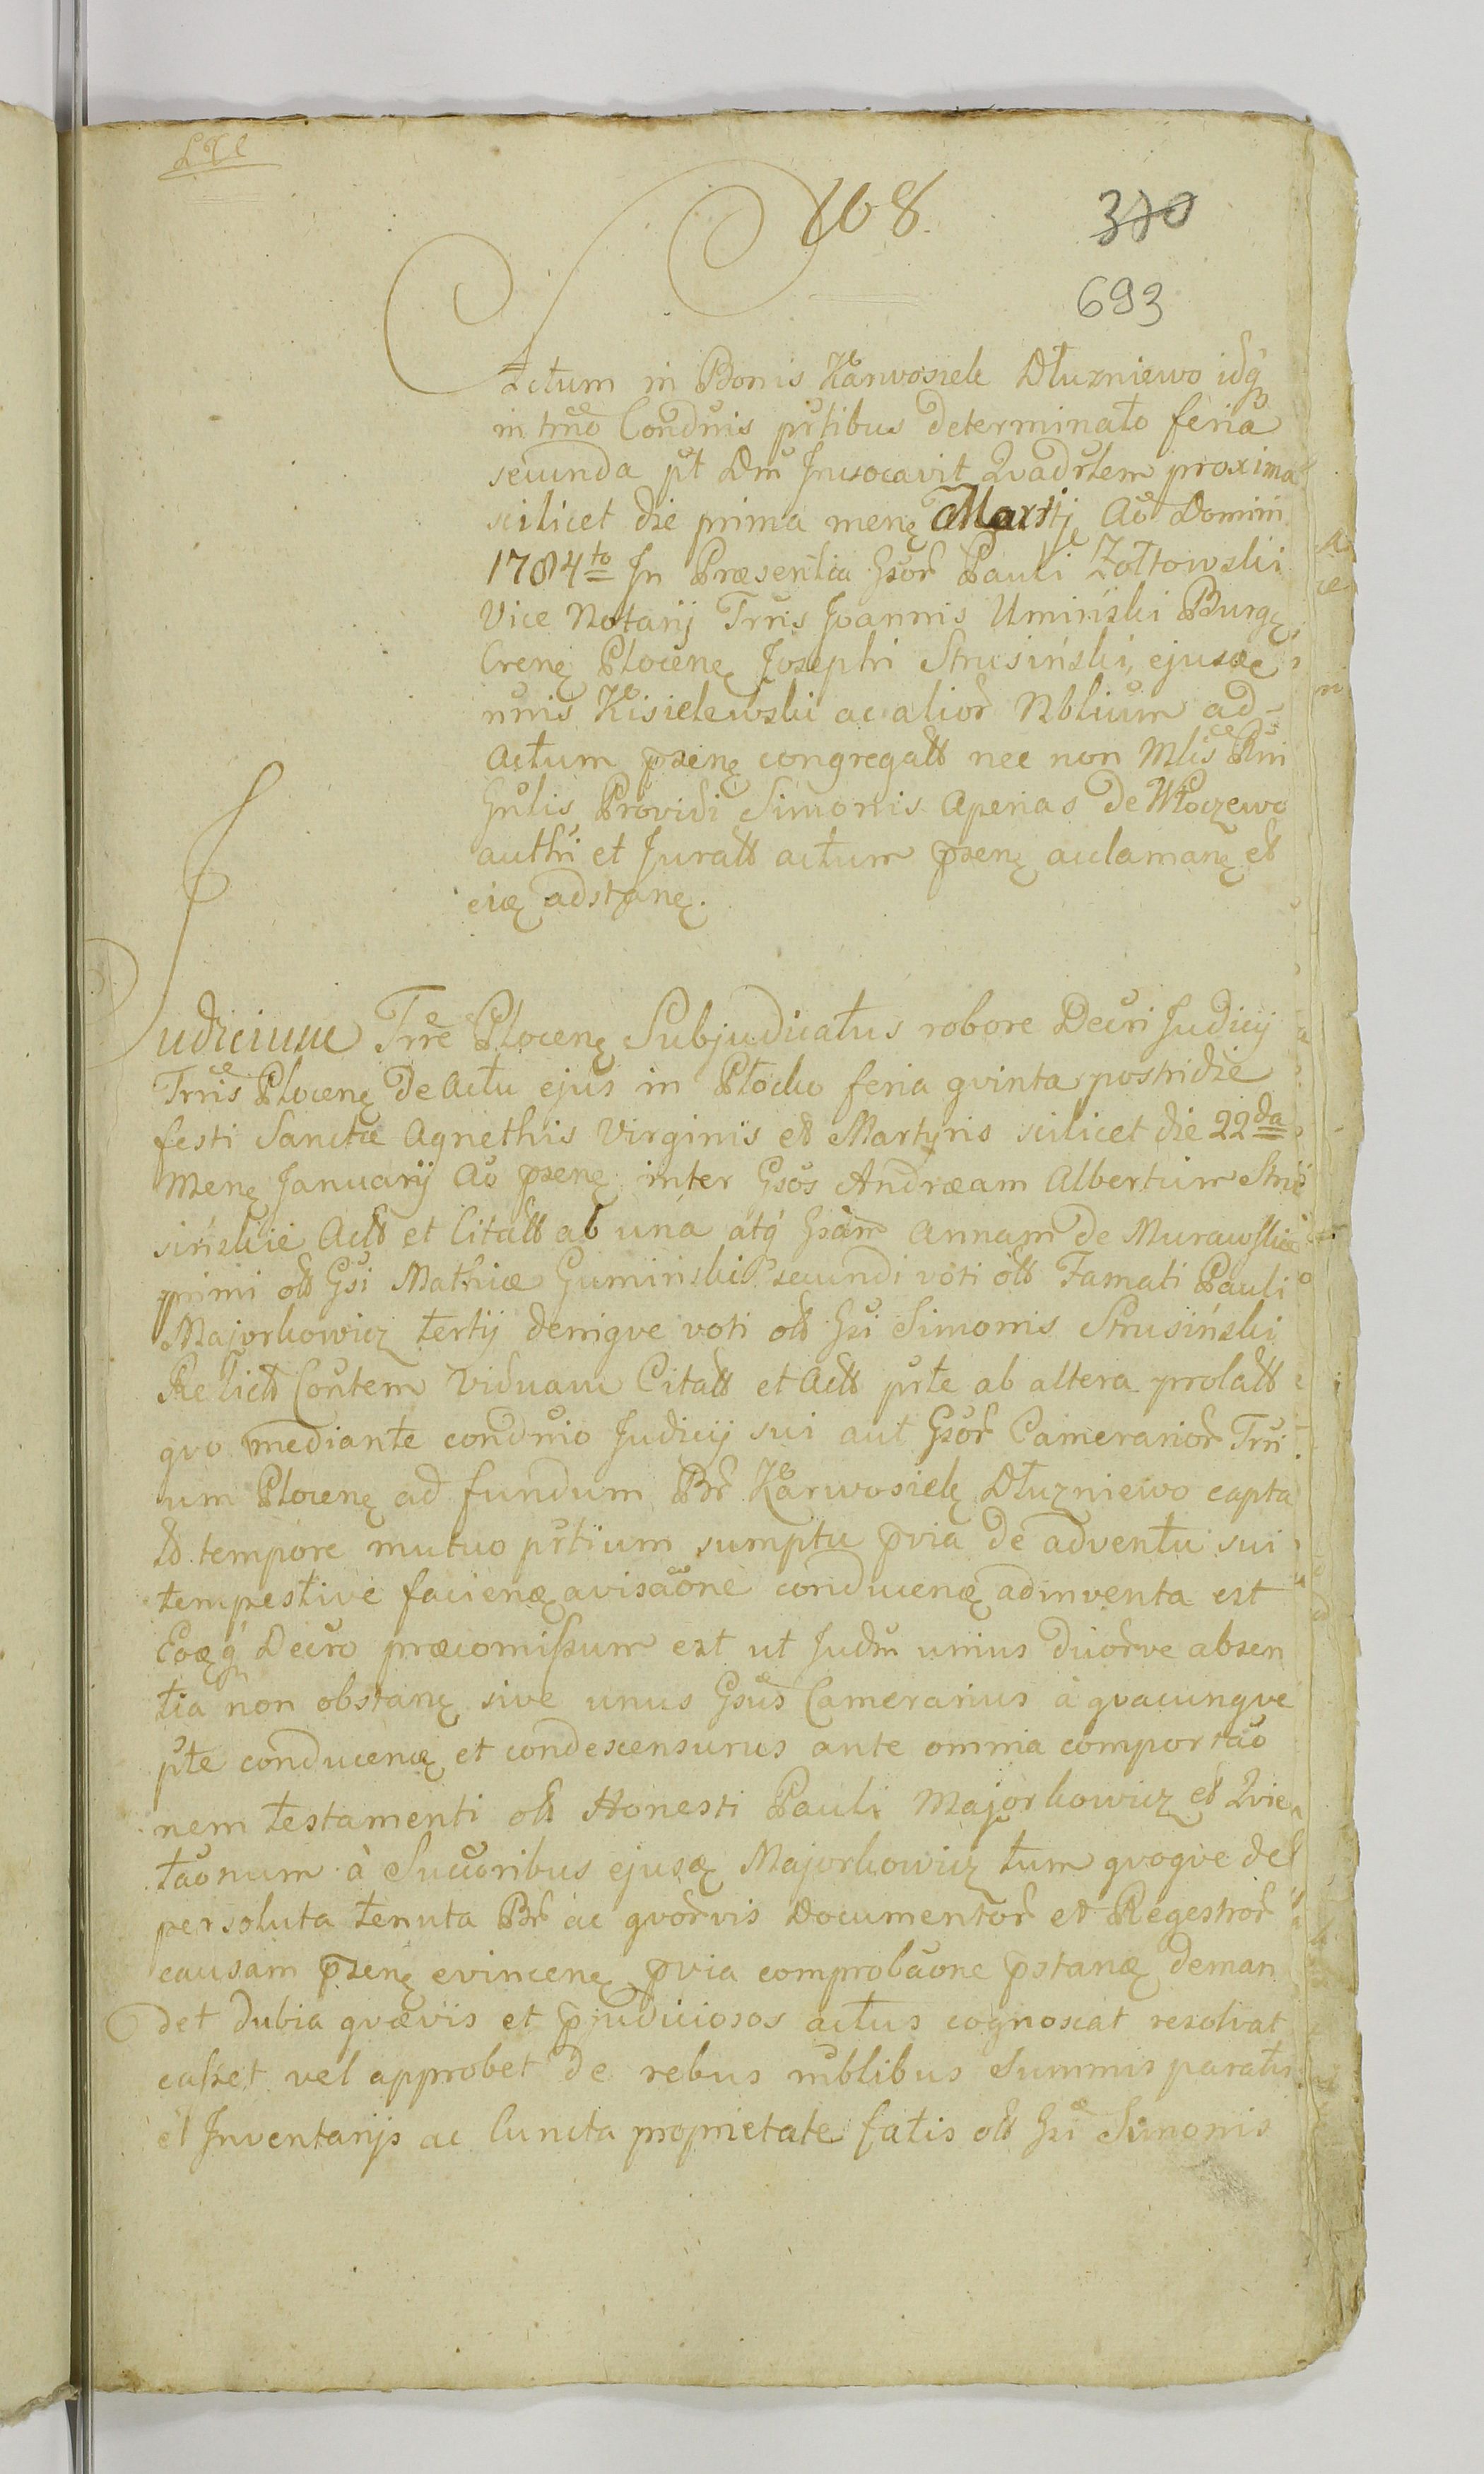 168.
370
693
Actum in Bonis Karwosieki Dłuzniewo idq
in tmno Condnis prtibus determinato feria
secunda pt Dm Invocavit Qvadrlem proxima
scilicet die prima mens Martij Ao Domini
1784to In Præsentia Gsor Pauli Zołtowski
Vice Notarij Trris Joannis Uminski Burgs
Crens Plocens Josephi Strusiński, ejusde
nnis Kisielewski ac alior Nblium ad-
Actum psens congregatt nec non Mlis Rni
Gnlis Providi Simonis Aperias de Włoczewo
authri et Juratt actum psens acclamans et
eide adstans.
Judicium Trre Plocens Subjudicatus robore Decri Judicij
Trris Plocens de Actu ejus in Płocko feria qvinta postridie
festi Sanctæ Agnethis Virginis et Martyris scilicet die 22da
Mens Januarij Ao psens inter Gsos Andræam Albertum Stru
sińskie Actt et Citatt ab una atq Gsam Annam de Murawskie
primi ott Gsi Mathiæ Guminski secundi voti ott Famati Pauli
Majorkowicz tertij deniqve voti ott Gsi Simonis Strusiński
Relictt Contem Viduam Citatt et Actt prte ab altera prolatt
qvo mediante condnio Judicij sui aut Gsor Camerarior Trri
um Plocens ad fundum Br Karwosieki Dłuzniewo capta
to tempore mutuo prtium sumptu pvia de adventu sui
tempestive faciens avisaone conducens adinventa est
Eodq Decro præcomissum est ut Judm unius duorve absen
tia non obstans sive unus Gsus Camerarius à qvacunqve
pte conducens et condescensurus ante omnia comportao
nem testamenti ott Honesti Pauli Majorkowicz et Qvie
taonum à Succoribus ejusde Majorkowicz tum qvoqve de
persoluta tenuta Br ac qvorvis Documentor et Regestror
causam psens evincens pvia comprobaone pstans deman
det dubia qvævis et pjudiciosos actus cognoscat resolvat
casset vel approbet de rebus mblibus Summis paratis
et Inventarijs ac Cuncta proprietate fatis ott Gsi Simonis